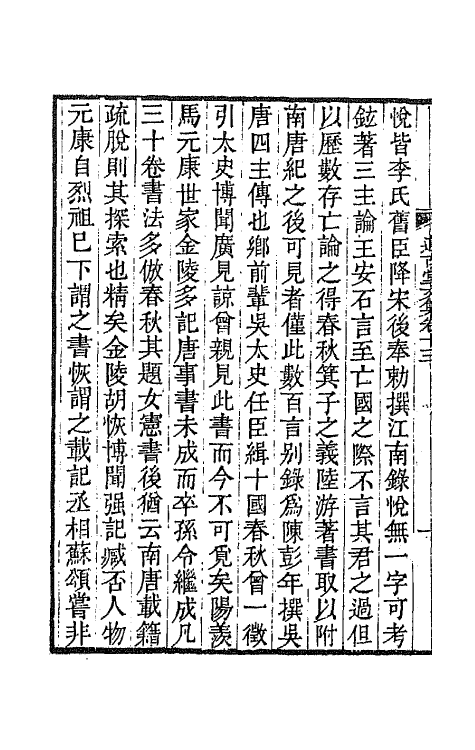 悅皆李氏舊臣降宋後奉勅撰江南錄悅無一字可考
鉉著三主論王安石言至亡國之際不言其君之過但
以歷數存亡論之得春秋箕子之義陸游著書取以附
南唐紀之後可見者僅此數百言别錄爲陳彭年撰吳
唐四主傳也鄉前輩吳太史任臣緝十國春秋曾一徵
引太史博聞廣見諒曾親見此書而今不可覓矣陽羨
馬元康世家金陵多記唐事書未成而卒孫令繼成凡
三十卷書法多倣春秋其題女憲書後猶云南唐載籍
疏脫則其探索也精矣金陵胡恢博聞强記臧否人物
元康自烈祖巳下謂之書恢謂之載記丞相蘇頌嘗非